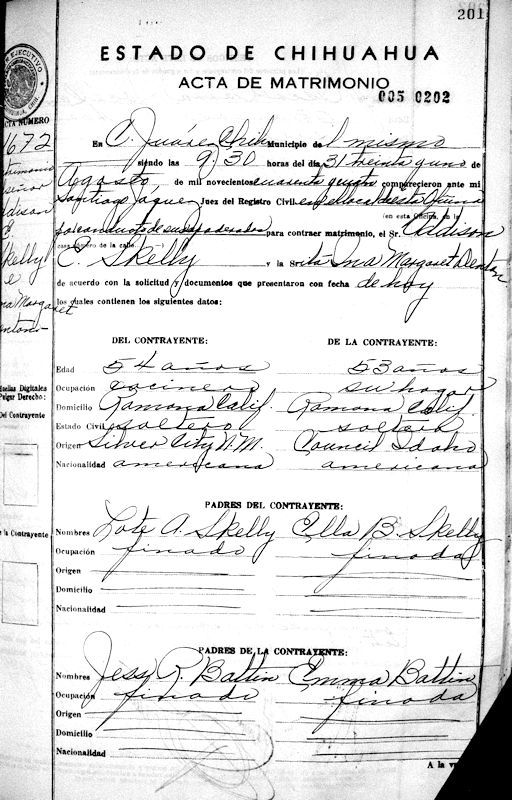 201
ESTADO DE CHIHUAHUA
ACTA DE MATRIMONIO
005 0202
EJECUTIVO
ACTA NUMERO
672
En C. Juárez, Chih. Municipio de l mismo
siendo las 9,30 horas del día 31 treinta y uno de
Agosto, de mil novecientos cuarenta y comparecieron ante mi
Santiago Juez del Registro Civil en el local de esta Oficina
(en esta Oficina, en la
por conducto de sus apoderados para contraer matrimonio, el Sr. Addison
casa número de la calle —)
E. Skelly y la Srita Ina Margaret Denton
de acuerdo con la solicitud y documentos que presentaron con fecha de hoy
los cuales contienen los siguientes datos:
Skelly
e
na Margaret
DEL CONTRAYENTE: DE LA CONTRAYENTE:
Edad 54 años 53 años
Ocupación cocinero su hogar
Domicilio Ramona Calif. Ramona Calif.
Estado Civil soltero soltera
Origen Silver City N.M. Council Idaho
Nacionalidad americana americana
Huellas Digitales
Pulgar Derecho:
Del Contrayente
PADRES DEL CONTRAYENTE:
Nombres Lote A. Skelly Ella B. Skelly
Ocupación finado finada
Origen
Domicilio
Nacionalidad
de la Contrayente
PADRES DE LA CONTRAYENTE:
Nombres Jess R. Battin Emma Battin
Ocupación finado finada
Origen
Domicilio
Nacionalidad
A la v